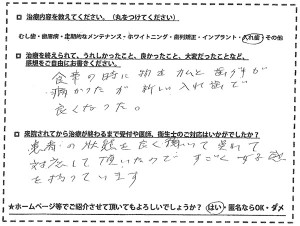 □ 治療内容を教えてください。（丸をつけてください）
むし歯・歯周病・定期的なメンテナンス・ホワイトニング・歯列矯正・インプラント・入れ歯・その他
□ 治療を終えられて、うれしかったこと、良かったこと、大変だったことなど、
感想をご自由にお書きください。
食事の時に物をカムと歯グキが
痛かったが新しい入れ歯で
良くなった。
□ 来院されてから治療が終わるまで受付や医師、衛生士のご対応はいかがでしたか？
患者の状態を良く聞いて呉れて
対応して頂いたのですごく
を持っています
★ホームページ等でご紹介させて頂いてもよろしいでしょうか？ はい・匿名ならOK・ダメ